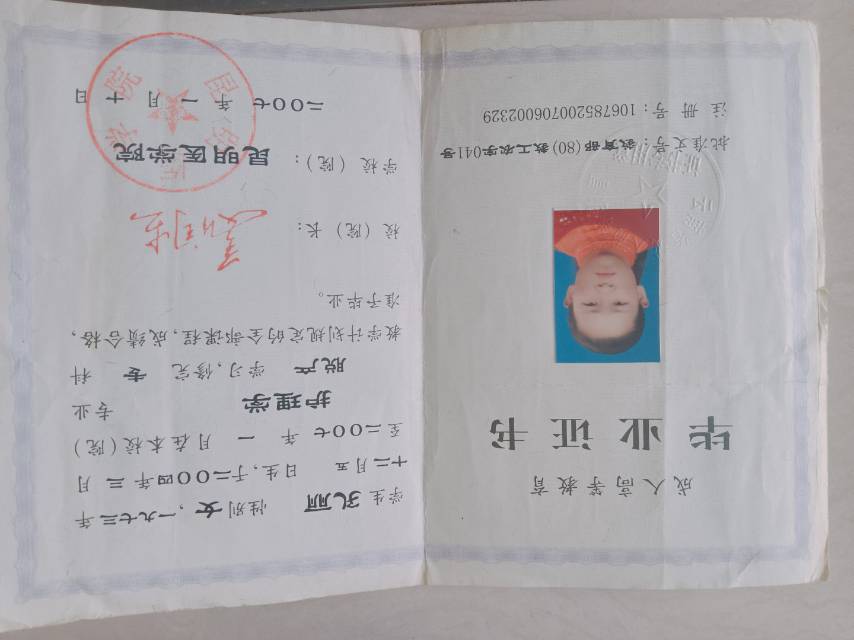 成人高等教育
毕业证书
批准文号:教育部(80)教工农字041号
注册号:106785200706002329
学生 孔丽 性别 女,一九七二年
十二月五 日生,于二〇〇四年 三 月
至二〇〇七年 一 月在本校(院)
护理学 专业
脱产 学习,修完 专 科
教学计划规定的全部课程,成绩合格,
准予毕业。
校(院)长:
学校(院):昆明医学院
二〇〇七年一月十日